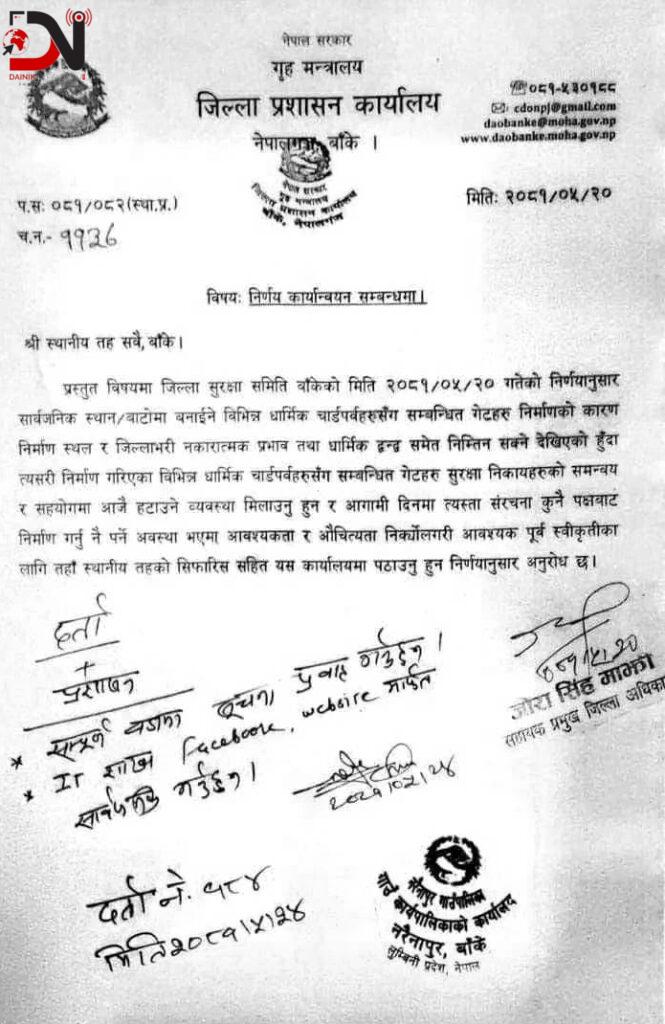 DN
DAINIK
नेपाल सरकार
गृह मन्त्रालय
जिल्ला प्रशासन कार्यालय
नेपालगञ्ज, बाँके ।
०८१-५३०१८८
cdonpj@gmail.com
daobanke@moha.gov.np
www.daobanke.moha.gov.np
नेपाल सरकार
गृह मन्त्रालय
जिल्ला प्रशासन कार्यालय
बाँके, नेपालगंज
प.स: ०८१/०८२(स्था.प्र.)
मिति: २०८१/०५/२०
च.न.- ११३६
विषय: निर्णय कार्यान्वयन सम्बन्धमा।
श्री स्थानीय तह सवै, बाँके।
प्रस्तुत विषयमा जिल्ला सुरक्षा समिति बाँकेको मिति २०८१/०५/२० गतेको निर्णयानुसार
सार्वजनिक स्थान/बाटोमा बनाईने विभिन्न धार्मिक चार्डपर्वहरुसँग सम्बन्धित गेटहरु निर्माणको कारण
निर्माण स्थल र जिल्लाभरी नकारात्मक प्रभाव तथा धार्मिक द्वन्द्व समेत निम्तिन सक्ने देखिएको हुँदा
त्यसरी निर्माण गरिएका विभिन्न धार्मिक चार्डपर्वहरुसँग सम्बन्धित गेटहरु सुरक्षा निकायहरुको समन्वय
र सहयोगमा आजै हटाउने व्यवस्था मिलाउनु हुन र आगामी दिनमा त्यस्ता संरचना कुनै पक्षवाट
निर्माण गर्नु नै पर्ने अवस्था भएमा आवश्यकता र औचित्यता निर्क्योलगरी आवश्यक पूर्व स्वीकृतीका
लागि तहाँ स्थानीय तहको सिफारिस सहित यस कार्यालयमा पठाउनु हुन निर्णयानुसार अनुरोध छ।
२०८१/५/२०
जोरा सिंह माझी
सहायक प्रमुख जिल्ला अधिका
दर्ता
+
प्रशासन
* सम्पूर्ण वडामा सूचना प्रवाह गर्नुहुन ।
* IT शाखा Facebook, website मार्फत
सार्वजनिक गर्नुहुन ।
२०८१/०५/२४
दर्ता नं. १८४
मिति २०८१/५/२४
नरैनापुर गाउँपालिका
गाउँ कार्यपालिकाको कार्यालय
नरैनापुर, बाँके
लुम्बिनी प्रदेश, नेपाल